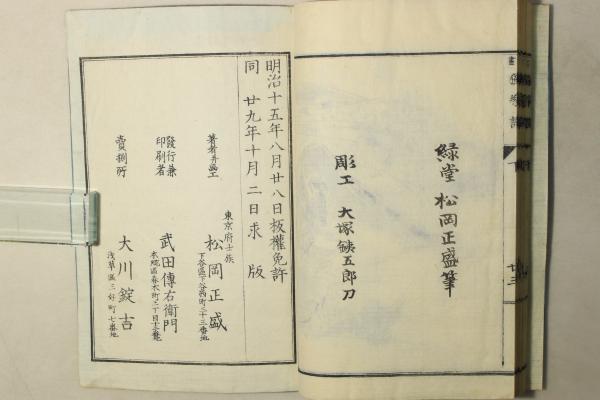 緑堂 松岡正盛筆
彫工 大塚鉄五郎刀
明治十五年八月廿八日板權免許
同 廿九年十月二日求版
著者并畫工
東京府士族
松岡正盛
下谷區下谷西町三十三番地
發行兼
印刷者
武田傳右衛門
本郷區春木町三丁目
賣捌所
大川錠吉
浅草區三好町七番地